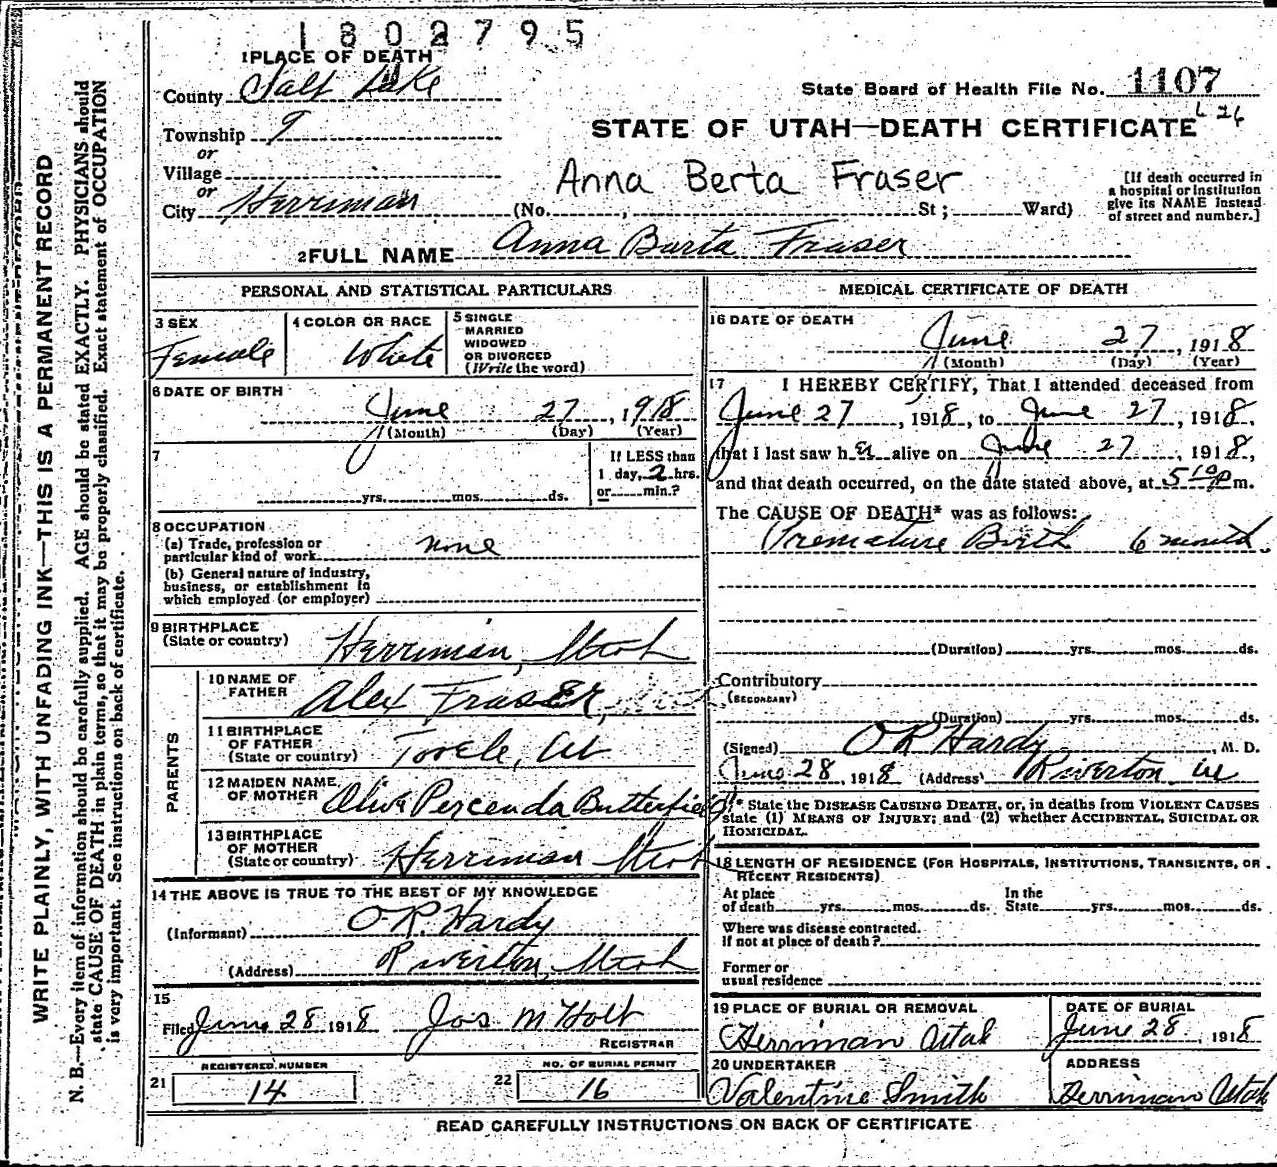 1802795
1 PLACE OF DEATH
County Salt Lake
State Board of Health File No. 1107
Township 9
or
STATE OF UTAH—DEATH CERTIFICATE
L 26
Village
or
Anna Berta Fraser
[If death occurred in a hospital or institution give its NAME instead of street and number.]
City Herriman (No. , St ; Ward)
2 FULL NAME Anna Burta Fraser
PERSONAL AND STATISTICAL PARTICULARS
3 SEX
Female
4 COLOR OR RACE
White
5 SINGLE
MARRIED
WIDOWED
OR DIVORCED
(Write the word)
6 DATE OF BIRTH
June 27, 1918
(Month) (Day) (Year)
7
yrs. mos. ds.
If LESS than
1 day, 2 hrs.
or min.?
8 OCCUPATION
(a) Trade, profession or
particular kind of work none
(b) General nature of industry,
business, or establishment in
which employed (or employer)
9 BIRTHPLACE
(State or country) Herriman, Utah
PARENTS
10 NAME OF
FATHER Alex Fraser,
11 BIRTHPLACE
OF FATHER
(State or country) Tooele, Ut
12 MAIDEN NAME
OF MOTHER Olive Percenda Butterfield
13 BIRTHPLACE
OF MOTHER
(State or country) Herriman Utah
14 THE ABOVE IS TRUE TO THE BEST OF MY KNOWLEDGE
(Informant) O R. Hardy
(Address) Riverton, Utah
15
Filed June 28 1918 Jos M Holt
REGISTRAR
REGISTERED NUMBER
21 14
NO. OF BURIAL PERMIT
22 16
MEDICAL CERTIFICATE OF DEATH
16 DATE OF DEATH
June 27, 1918
(Month) (Day) (Year)
17 I HEREBY CERTIFY, That I attended deceased from
June 27, 1918, to June 27, 1918,
that I last saw h er alive on June 27, 1918,
and that death occurred, on the date stated above, at 5 10 p m.
The CAUSE OF DEATH* was as follows:
Premature Birth 6 month.
(Duration) yrs. mos. ds.
Contributory
(SECONDARY)
(Duration) yrs. mos. ds.
(Signed) O R Hardy, M. D.
June 28, 1918 (Address) Riverton Ut
* State the DISEASE CAUSING DEATH, or, in deaths from VIOLENT CAUSES
state (1) MEANS OF INJURY; and (2) whether ACCIDENTAL, SUICIDAL OR
HOMICIDAL.
18 LENGTH OF RESIDENCE (FOR HOSPITALS, INSTITUTIONS, TRANSIENTS, OR
RECENT RESIDENTS)
At place
of death yrs. mos. ds.
In the
State yrs. mos. ds.
Where was disease contracted.
if not at place of death?
Former or
usual residence
19 PLACE OF BURIAL OR REMOVAL
Herriman Utah
DATE OF BURIAL
June 28, 1918
20 UNDERTAKER
Valentine Smith
ADDRESS
Herriman Utah
READ CAREFULLY INSTRUCTIONS ON BACK OF CERTIFICATE
WRITE PLAINLY, WITH UNFADING INK—THIS IS A PERMANENT RECORD
N. B.—Every item of information should be carefully supplied. AGE should be stated EXACTLY. PHYSICIANS should
state CAUSE OF DEATH in plain terms, so that it may be properly classified. Exact statement of OCCUPATION
is very important. See instructions on back of certificate.